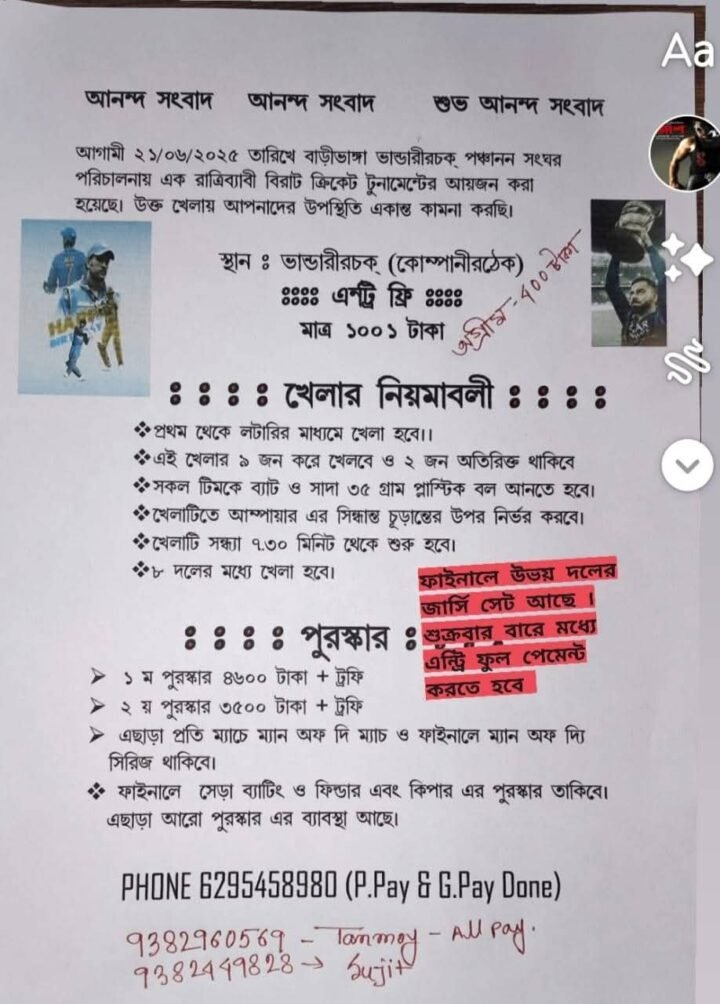 Aa
আনন্দ সংবাদ আনন্দ সংবাদ শুভ আনন্দ সংবাদ
আগামী ২১/০৬/২০২৫ তারিখে বাড়ীভাঙ্গা ভান্ডারীরচক্ পঞ্চানন সংঘর
পরিচালনায় এক রাত্রিব্যাবী বিরাট ক্রিকেট টুনামেন্টের আয়জন করা
হয়েছে। উক্ত খেলায় আপনাদের উপস্থিতি একান্ত কামনা করছি।
স্থান ঃ ভান্ডারীরচক্ (কোম্পানীরঠেক)
ঃঃঃঃ এন্ট্রি ফ্রি ঃঃঃঃ
মাত্র ১০০১ টাকা
অগ্রীম - 400 টাকা
ঃ ঃ ঃ ঃ খেলার নিয়মাবলী ঃ ঃ ঃ ঃ
❖প্রথম থেকে লটারির মাধ্যমে খেলা হবে।।
❖এই খেলার ৯ জন করে খেলবে ও ২ জন অতিরিক্ত থাকিবে
❖সকল টিমকে ব্যাট ও সাদা ৩৫ গ্রাম প্লাস্টিক বল আনতে হবে।
❖খেলাটিতে আম্পায়ার এর সিদ্ধান্ত চূড়ান্তের উপর নির্ভর করবে।
❖খেলাটি সন্ধ্যা ৭.৩০ মিনিট থেকে শুরু হবে।
❖৮ দলের মধ্যে খেলা হবে।
ফাইনালে উভয় দলের
জার্সি সেট আছে ।
শুক্রবার বারে মধ্যে
এন্ট্রি ফুল পেমেন্ট
করতে হবে
ঃ ঃ ঃ ঃ পুরস্কার ঃ
➢ ১ ম পুরস্কার ৪৬০০ টাকা + ট্রফি
➢ ২ য় পুরস্কার ৩৫০০ টাকা + ট্রফি
➢ এছাড়া প্রতি ম্যাচে ম্যান অফ দি ম্যাচ ও ফাইনালে ম্যান অফ দ্যি
সিরিজ থাকিবে।
❖ ফাইনালে সেড়া ব্যাটিং ও ফিল্ডার এবং কিপার এর পুরস্কার তাকিবে।
এছাড়া আরো পুরস্কার এর ব্যাবস্থা আছে।
PHONE 6295458980 (P.Pay & G.Pay Done)
9382960569 - Tanmoy - All Pay.
9382449828 → Sujit